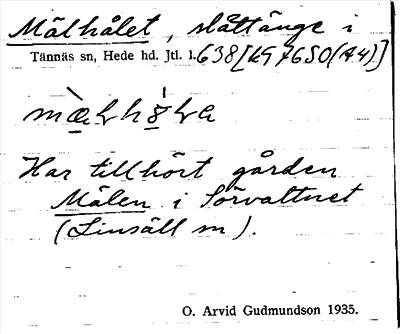 Mälhålet, slåttänge i
Tännäs sn, Hede hd. Jtl. l. 638 [LG 7650 (A4)]
Har tillhört gården
Målen i Sörvattnet
(Linsäll sn).
O. Arvid Gudmundson 1935.